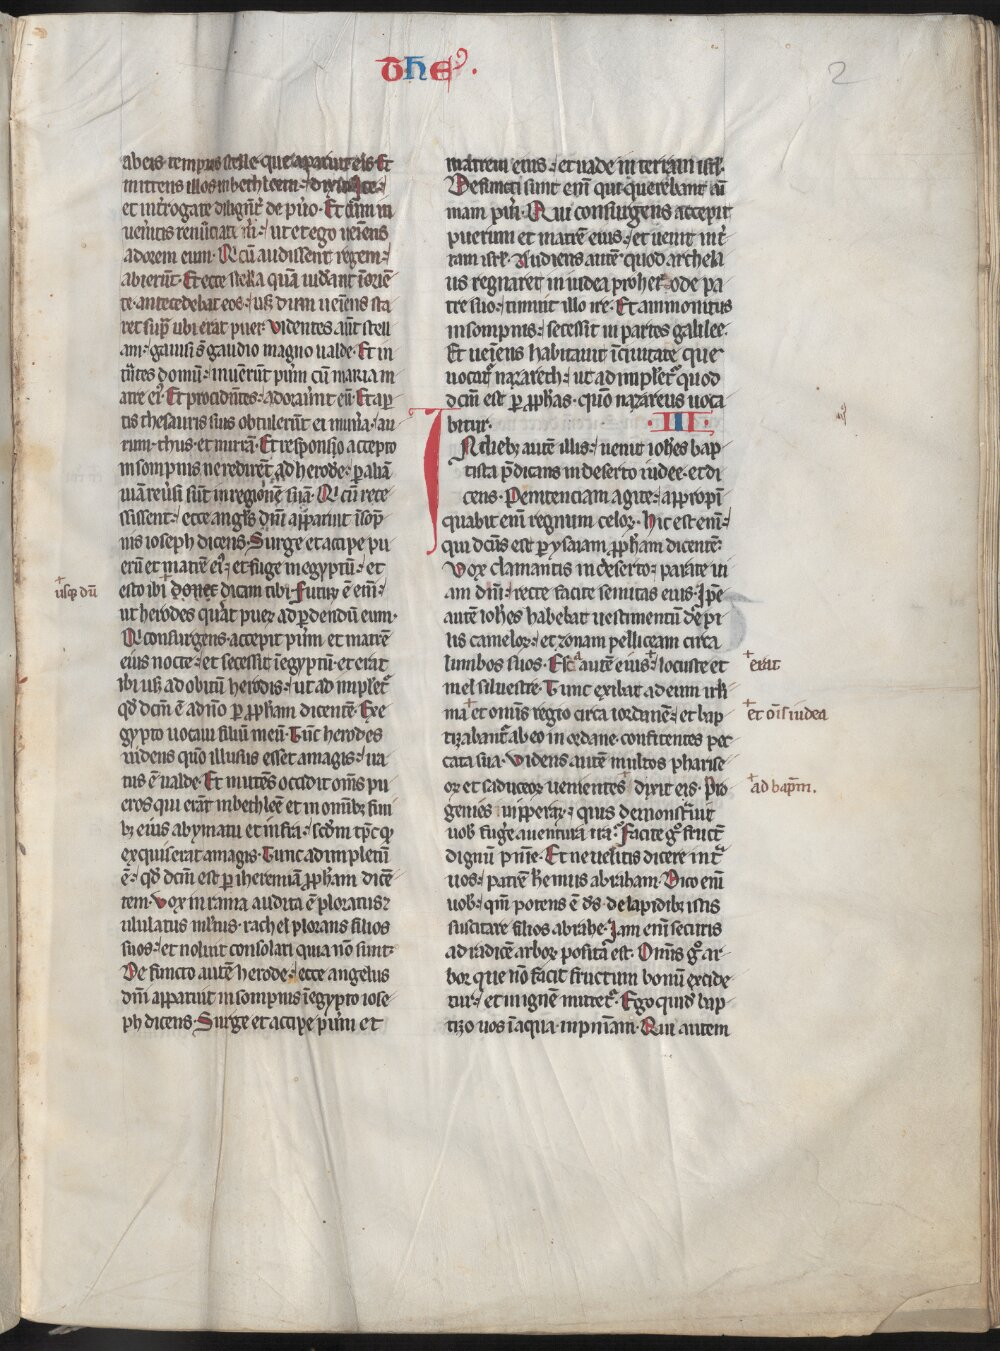 the⁹.
2
ab eis tempus stelle que apparuit eis. Et
mittens illos in bethleem: dixit. Ite:
et int̾rogate diligent̾ de pu̾o. Et cum in
uen̾itis renu̅ciate m̅: ut et ego uei̅ens
adorem eum. Q̇ cu̅ audissent regem:
abieru̅t. Et ecce stella qua̅ uid̾ant i̅ orie̅
te. antecedebat eos: usq̢ dum uei̅ens sta
ret sup̾ ubi erat puer. Videntes aut̅ stell
am: gauisi s̅ gaudio magno ualde. Et in
t̾ntes domu̅: inuen̾u̅t pu̾m cu̅ maria m
atre ei⁹. Et procide̅tes: adorau̾u̅t eu̅. Et ap̾
tis thesauris suis obtuler̅t ei mun̾a: au
rum. thus. et mirra̅. Et responso accepto
in sompnis ne redire̅t ad herode: p̱ alia̅
uia̅ reu̾si su̅t in regione̅ sua̅. Q̇ cu̅ rece
ssissent: ecce angl̅s d̅ni app̱aruit i̅ so̅p̅
nis ioseph dicens. Surge et accipe pu
eru̅ et matre̅ ei⁹. et fuge in egyptu̅: et
esto ibi donec dicam tibi. Futur̅ e̅ eni̅:
usq̢ du̅
ut herodes quer̾at puer̅ ad p̱dendu̅ eum.
Q̇ consurgens. accepit pu̾m et matre̅
eius nocte: et secessit i̅ egyptu̅. et erat
ibi usq̢ ad obitu̅ herodis: ut ad implet̾
qd̅ dc̅m e̅ a dn̅o p̱ p̱ph̅am dicente̅. Exe
gypto uocaui filiu̅ meu̅. Tu̅c herodes
uidens quo̅ illusus esset a magis: ira
tus e̅ ualde. Et mite̅s occidit om̅s pu
eros qui era̅t in bethlee̅ et in om̅ib̢ fini
b̢ eius a bymatu et infra: scd̅m tp̅c q̢
exquiserat a magis. Tunc ad impletu̅
e̅: qd̅ dc̅m est p̱ iheremia̅ p̱ph̅am dice̅
tem. Vox in rama audita e̅ ploratus:
ululatus m̾ltus. rachel plorans filios
suos: et noluit consolari quia no̅ sunt:
Defuncto aute̅ herode: ecce angelus
dn̅i apparuit in sompnis i̅ egypto iose
ph dicens. Surge et accipe pu̾m et
matrem eius: et uade in terram isrl̅.
Defuncti sunt eni̅ qui querebant a̅i
mam pu̾i. Qui consurgens accepit
puerum et matre̅ eius: et uenit in t̾
ram isrl̅. Audiens aute̅ quod archela
us regnaret in iudea pro herode pa
tre suo: timuit illo ire. Et ammonitus
in sompnis: secessit in partes galilee.
Et uei̅ens habitauit i̅ ciuitate que
uocat̾ nazareth: ut ad implet̾ quod
dc̅m est p̱ p̱ph̅as. quo̅ nazareus uoca
bitur.
.III.
IN dieb̢ aute̅ illis: uenit ioh̅es bap
tista p̅dicans in deserto iudee. et di
cens. Penitenciam agite: appropi̅
quabit eni̅ regnum celor̅. Hic est eni̅:
qui dc̅us est p̱ ysaiam p̱ph̅am dicente̅:
Vox clamantis in deserto: parate ui
am dn̅i: recte facite semitas eius. Ip̅e
aute̅ ioh̅es habebat uestimentu̅ de pi
lis camelor̅: et zonam pelliceam circa
lumbos suos. Esca aute̅ eius: locuste et
erat
mel siluestre. Tunc exibat ad eum irl̅i
ma et omnis regio circa iordane̅: et bap
et oi̅s iudea
tizabant̾ ab eo in iordane. confitentes pec
cata sua. Videns aute̅ multos pharise
or̅ et saduceor̅ uenientes dixit eis. Pro
ad bap̅m.
genies uiperar̅: quis demonst̾uit
uob̅ fug̾e a uentura ira? Facite g̊ fruct̅
dignu̅ p̅nie̅. Et ne uelitis dicere int̾
uos: patre̅ h̅emus abraham. Dico eni̅
uob̅. qm̅ potens e̅ d̅s. de lapidib̢ istis
suscitare filios abrahe. Iam eni̅ securis
ad radice̅ arbor̅ posita est. Om̅is g̊ ar
bor que no̅ facit fructum bonu̅ excide
tur: et in igne̅ mittet̾. Ego quid̅ bap
tizo uos i̅ aqua. in pn̅iam. Qui autem